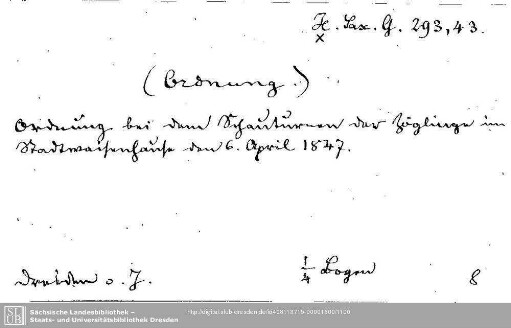 H. Sax. G. 293,43.
x
(Ordnung.)
Ordnung bei dem Schauturnen der Zöglinge im
Stadtwaisenhause den 6. April 1847.
Dresden o. J.
1/4 Bogen
8
SLUB
Sächsische Landesbibliothek –
Staats- und Universitätsbibliothek Dresden